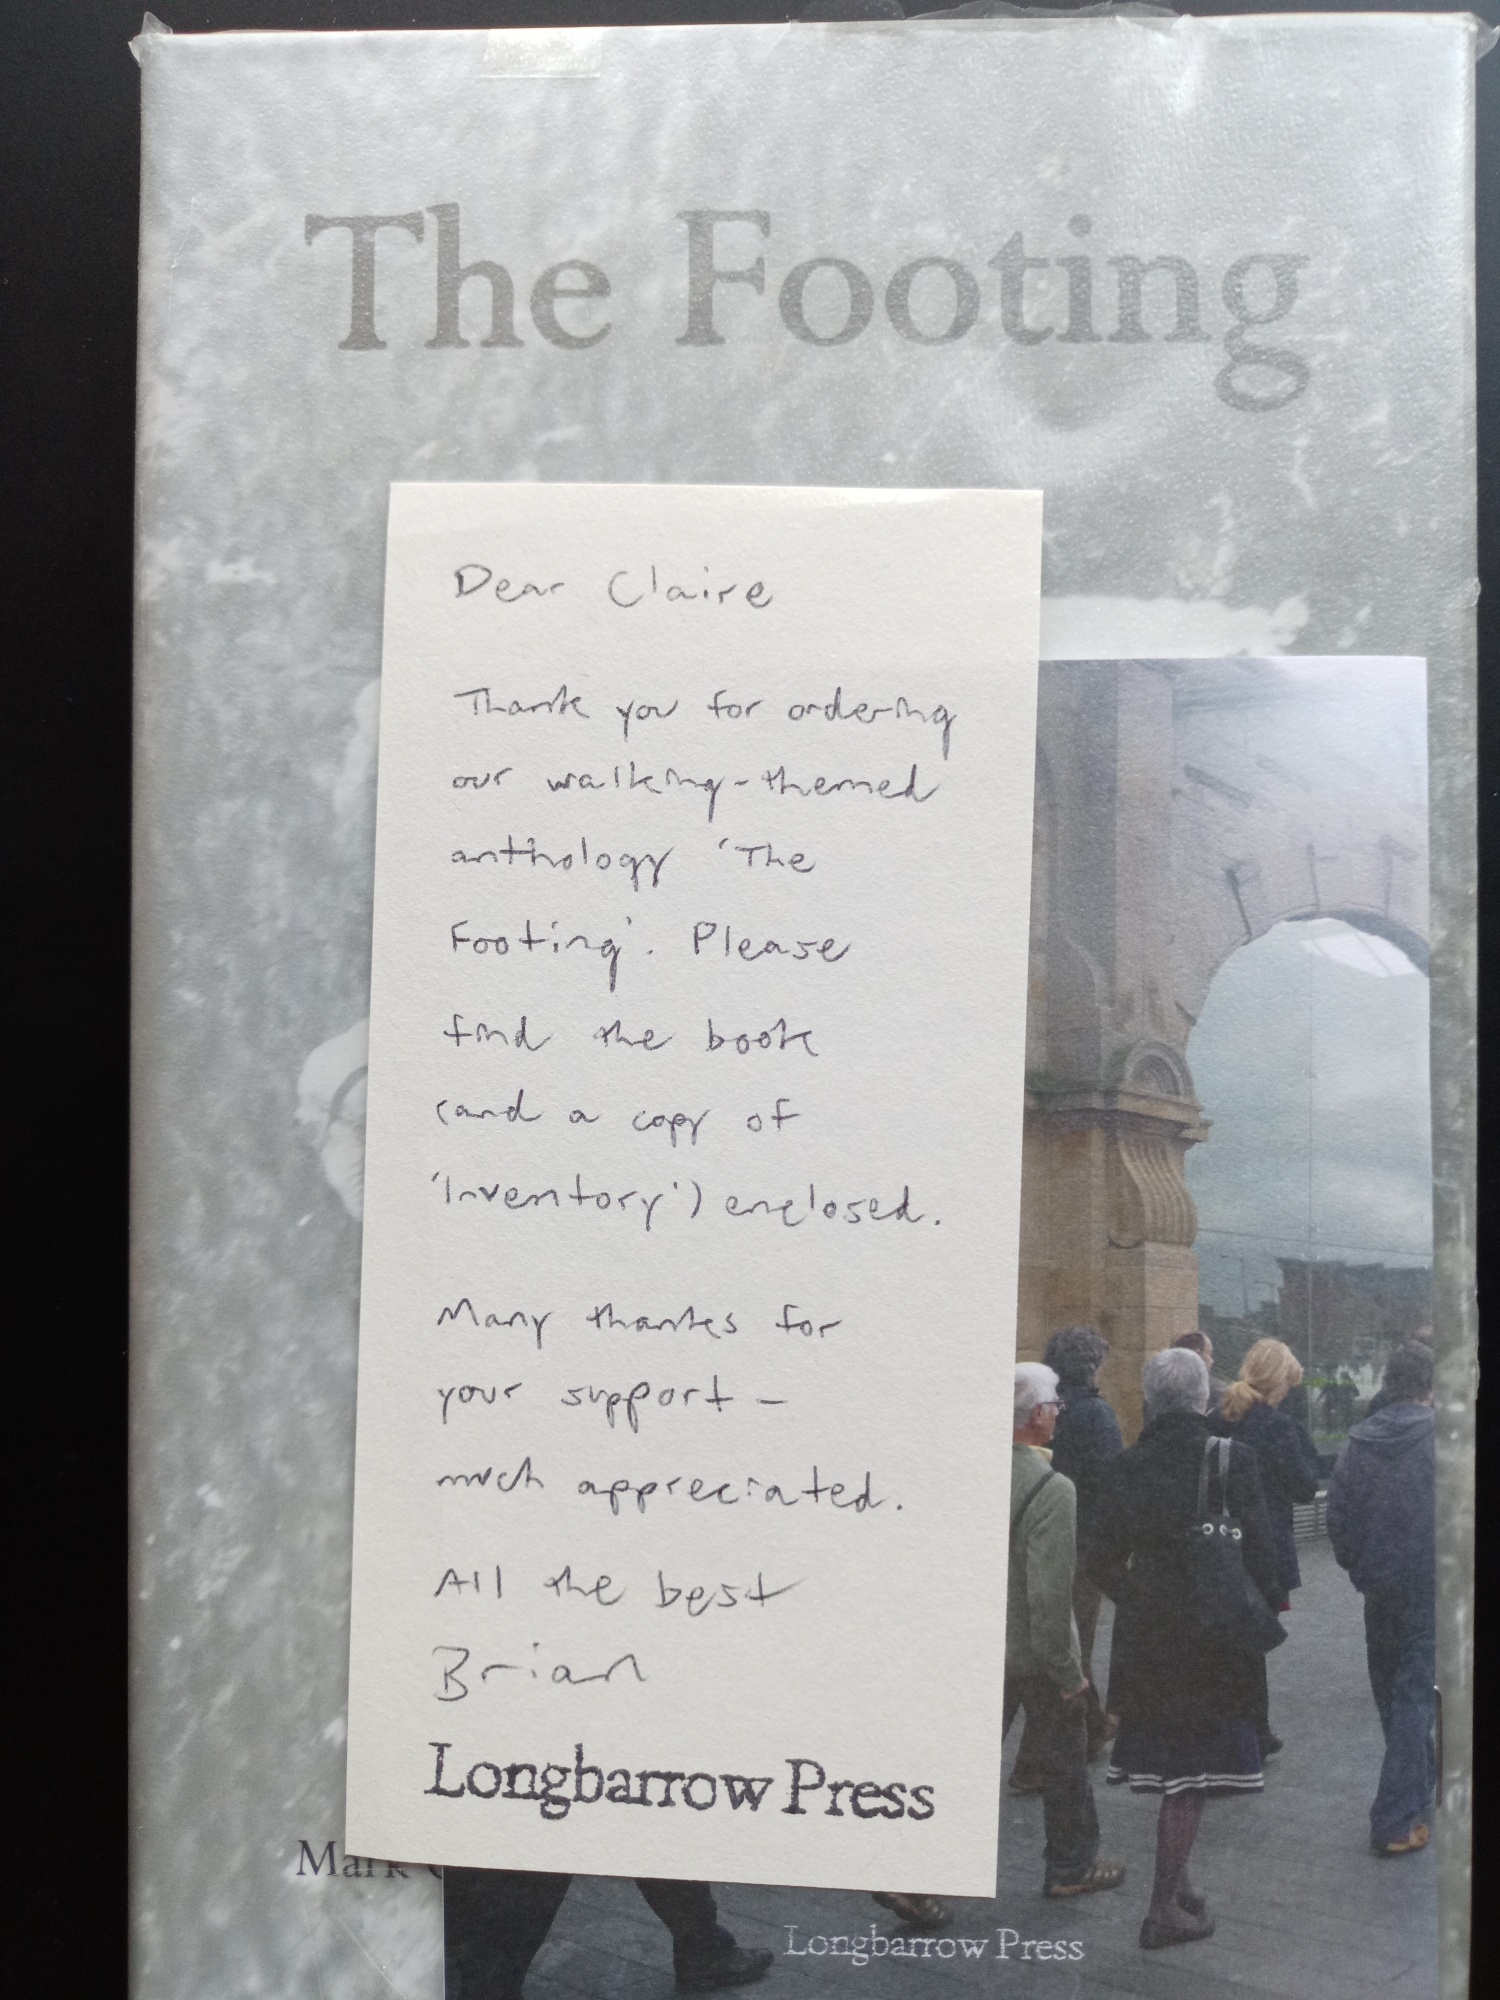 The Footing
Dear Claire
Thank you for ordering
our walking-themed
anthology 'The
Footing'. Please
find the book
(and a copy of
'Inventory') enclosed.
Many thanks for
your support –
much appreciated.
All the best
Brian
Longbarrow Press
Mark
Longbarrow Press